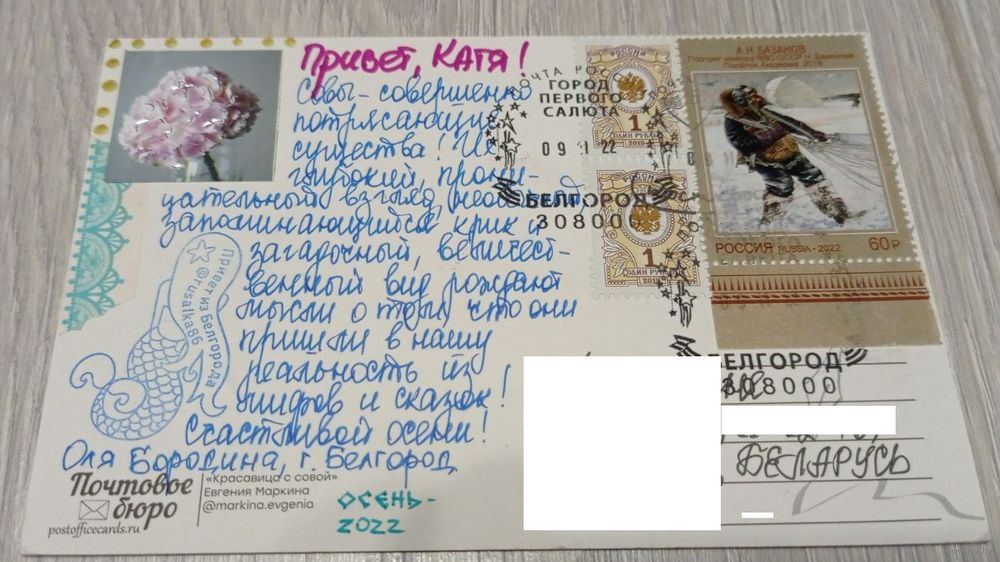 Привет, Катя!
Совы - совершенно
потрясающие
существа! Их
глубокий, прони-
цательный взгляд,
запоминающийся крик и
загадочный, величест-
венный вид рождают
мысли о том, что они
пришли в нашу
реальность из
мифов и сказок!
Счастливой осени!
Оля Бородина, г. Белгород
ОСЕНЬ-
2022
Привет из Белгорода
@rusalka86
Почтовое
бюро
postofficecards.ru
«Красавица с совой»
Евгения Маркина
@markina.evgenia
РОССИЯ
1
ОДИН РУБЛЬ
2019
РОССИЯ
1
ОДИН РУБЛЬ
2019
ПОЧТА РОС
ГОРОД
ПЕРВОГО
САЛЮТА
09 11 22
БЕЛГОРОД
308000
А.Н. БАЗАНОВ
РОССИЯ RUSSIA • 2022 60 ₽
БЕЛГОРОД
308000
БЕЛАРУСЬ